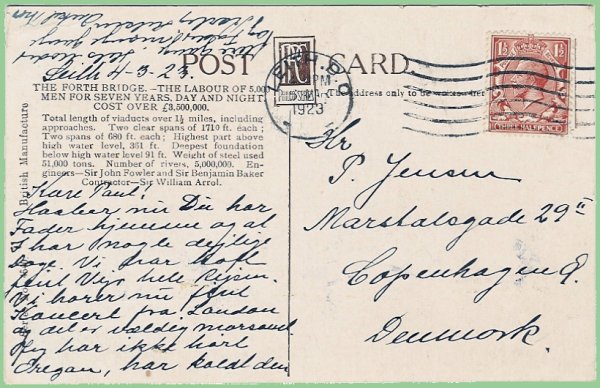 POST CARD
Leith 4-3-23.
THE FORTH BRIDGE.—THE LABOUR OF 5,000
MEN FOR SEVEN YEARS, DAY AND NIGHT.
COST OVER £3,500,000.
Total length of viaducts over 1½ miles, including
approaches. Two clear spans of 1710 ft. each;
Two spans of 680 ft. each; Highest part above
high water level, 361 ft. Deepest foundation
below high water level 91 ft. Weight of steel used
51,000 tons. Number of rivers, 5,000,000. En-
gineers—Sir John Fowler and Sir Benjamin Baker
Contractor—Sir William Arrol.
British Manufacture
Kære Paul!
Haaber nu Du har
Fader hjemme og at
I har nogle dejlige
Vi har haft
fint Vejr hele Rejsen.
Vi hører nu fint
Koncert fra London
og det er vældig morsomt
Jeg har ikke hørt
har holdt den
LEITH
PM
1923
The address only to be
1½ 1½
THREE HALFPENCE
Hr
P. Jensen
Marstalsgade 29
Copenhagen Ø.
Denmark.